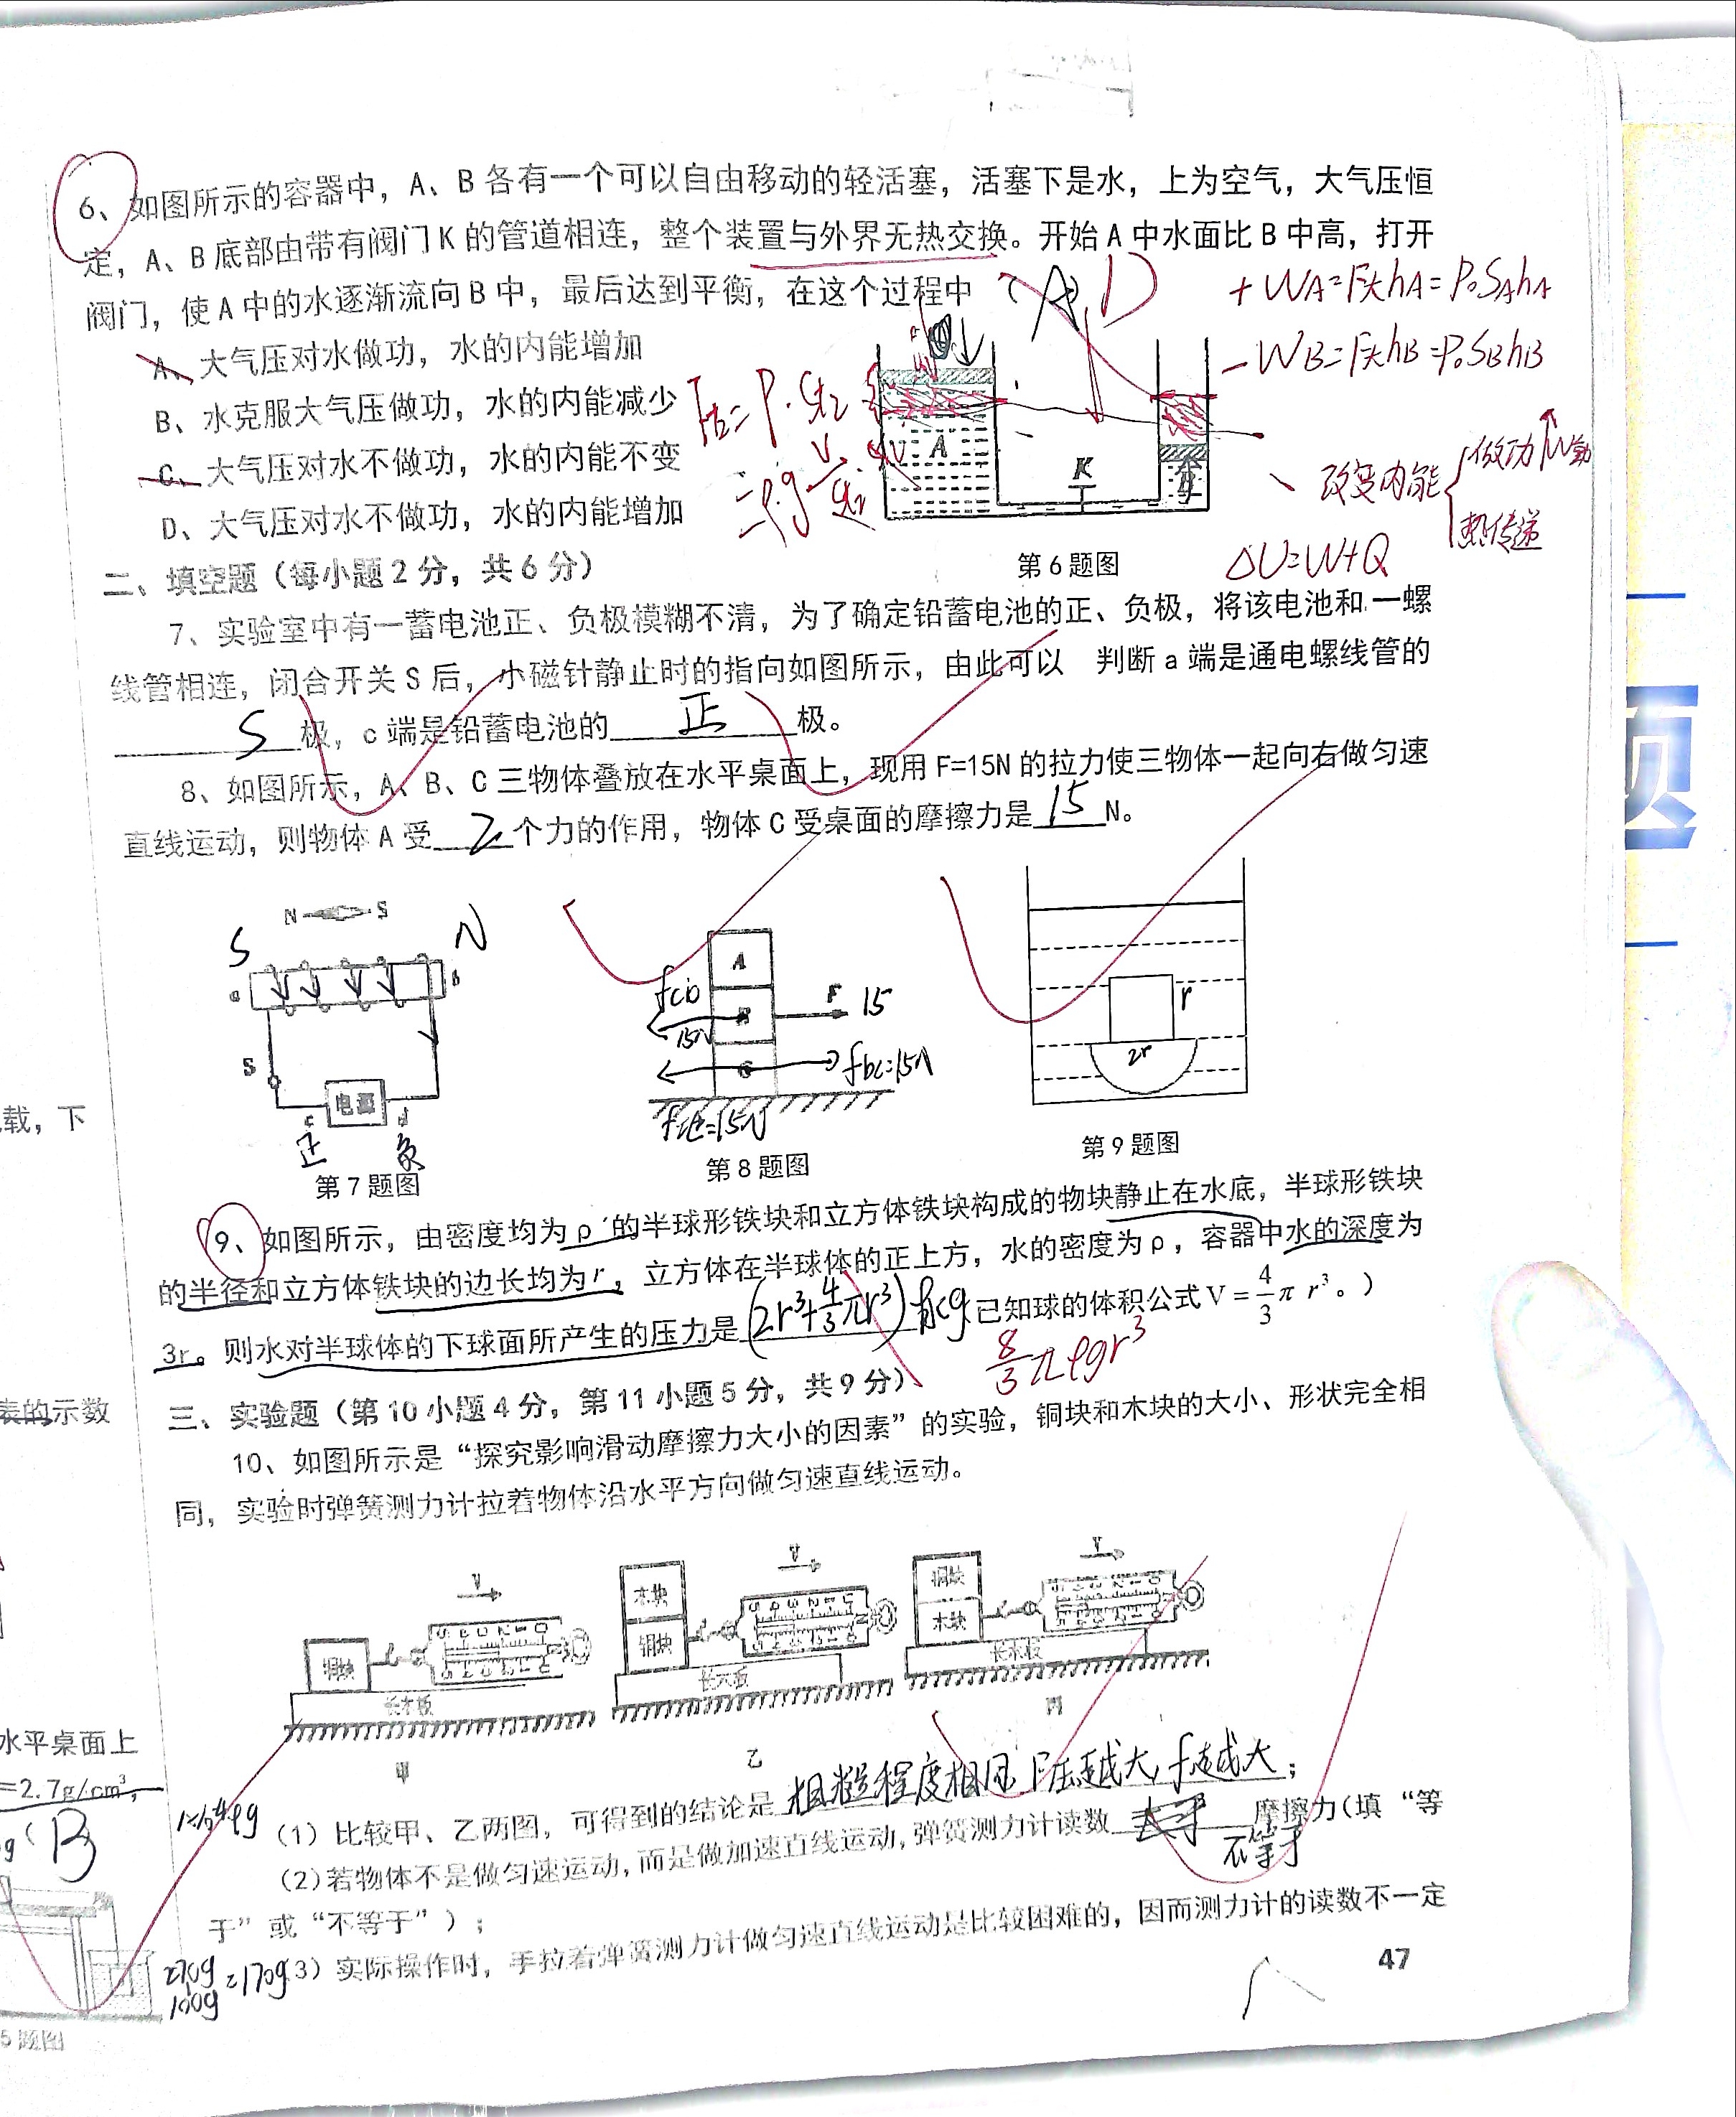 6、如图所示的容器中，A、B 各有一个可以自由移动的轻活塞，活塞下是水，上为空气，大气压恒
定，A、B 底部由带有阀门 K 的管道相连，整个装置与外界无热交换。开始 A 中水面比 B 中高，打开
阀门，使 A 中的水逐渐流向 B 中，最后达到平衡，在这个过程中（A）D
+WA=F大hA=P₀SAhA
-WB=F大hB=P₀SBhB
A、大气压对水做功，水的内能增加
B、水克服大气压做功，水的内能减少
C、大气压对水不做功，水的内能不变
D、大气压对水不做功，水的内能增加
A
K
改变内能
做功
热传递
ΔU=W+Q
第 6 题图
二、填空题（每小题 2 分，共 6 分）
7、实验室中有一蓄电池正、负极模糊不清，为了确定铅蓄电池的正、负极，将该电池和一螺
线管相连，闭合开关 S 后，小磁针静止时的指向如图所示，由此可以 判断 a 端是通电螺线管的
S 极，c 端是铅蓄电池的 正 极。
8、如图所示，A、B、C 三物体叠放在水平桌面上，现用 F=15N 的拉力使三物体一起向右做匀速
直线运动，则物体 A 受 2 个力的作用，物体 C 受桌面的摩擦力是 15 N。
N S
S N
a b
S
电源
c d
正 负
第 7 题图
A
fcb
15N
F 15
C
fbc=15N
f地=15N
第 8 题图
r
2r
第 9 题图
9、如图所示，由密度均为 ρ′的半球形铁块和立方体铁块构成的物块静止在水底，半球形铁块
的半径和立方体铁块的边长均为 r，立方体在半球体的正上方，水的密度为 ρ，容器中水的深度为
3r。则水对半球体的下球面所产生的压力是(2r³+4/3πr³)ρ水g 已知球的体积公式 V=4/3π r³。）
8/3πρgr³
三、实验题（第 10 小题 4 分，第 11 小题 5 分，共 9 分）
10、如图所示是“探究影响滑动摩擦力大小的因素”的实验，铜块和木块的大小、形状完全相
同，实验时弹簧测力计拉着物体沿水平方向做匀速直线运动。
V
铜块
长木板
甲
V
木块
铜块
长木板
乙
V
铜块
木块
长木板
丙
（1）比较甲、乙两图，可得到的结论是 粗糙程度相同 F压越大，f越大；
（2）若物体不是做匀速运动，而是做加速直线运动，弹簧测力计读数 不等于 摩擦力（填“等
于”或“不等于”）；
（3）实际操作时，手拉着弹簧测力计做匀速直线运动是比较困难的，因而测力计的读数不一定
47
载，下
表的示数
水平桌面上
=2.7g/cm³，
g（B
270g
100g
=170g
5 题图